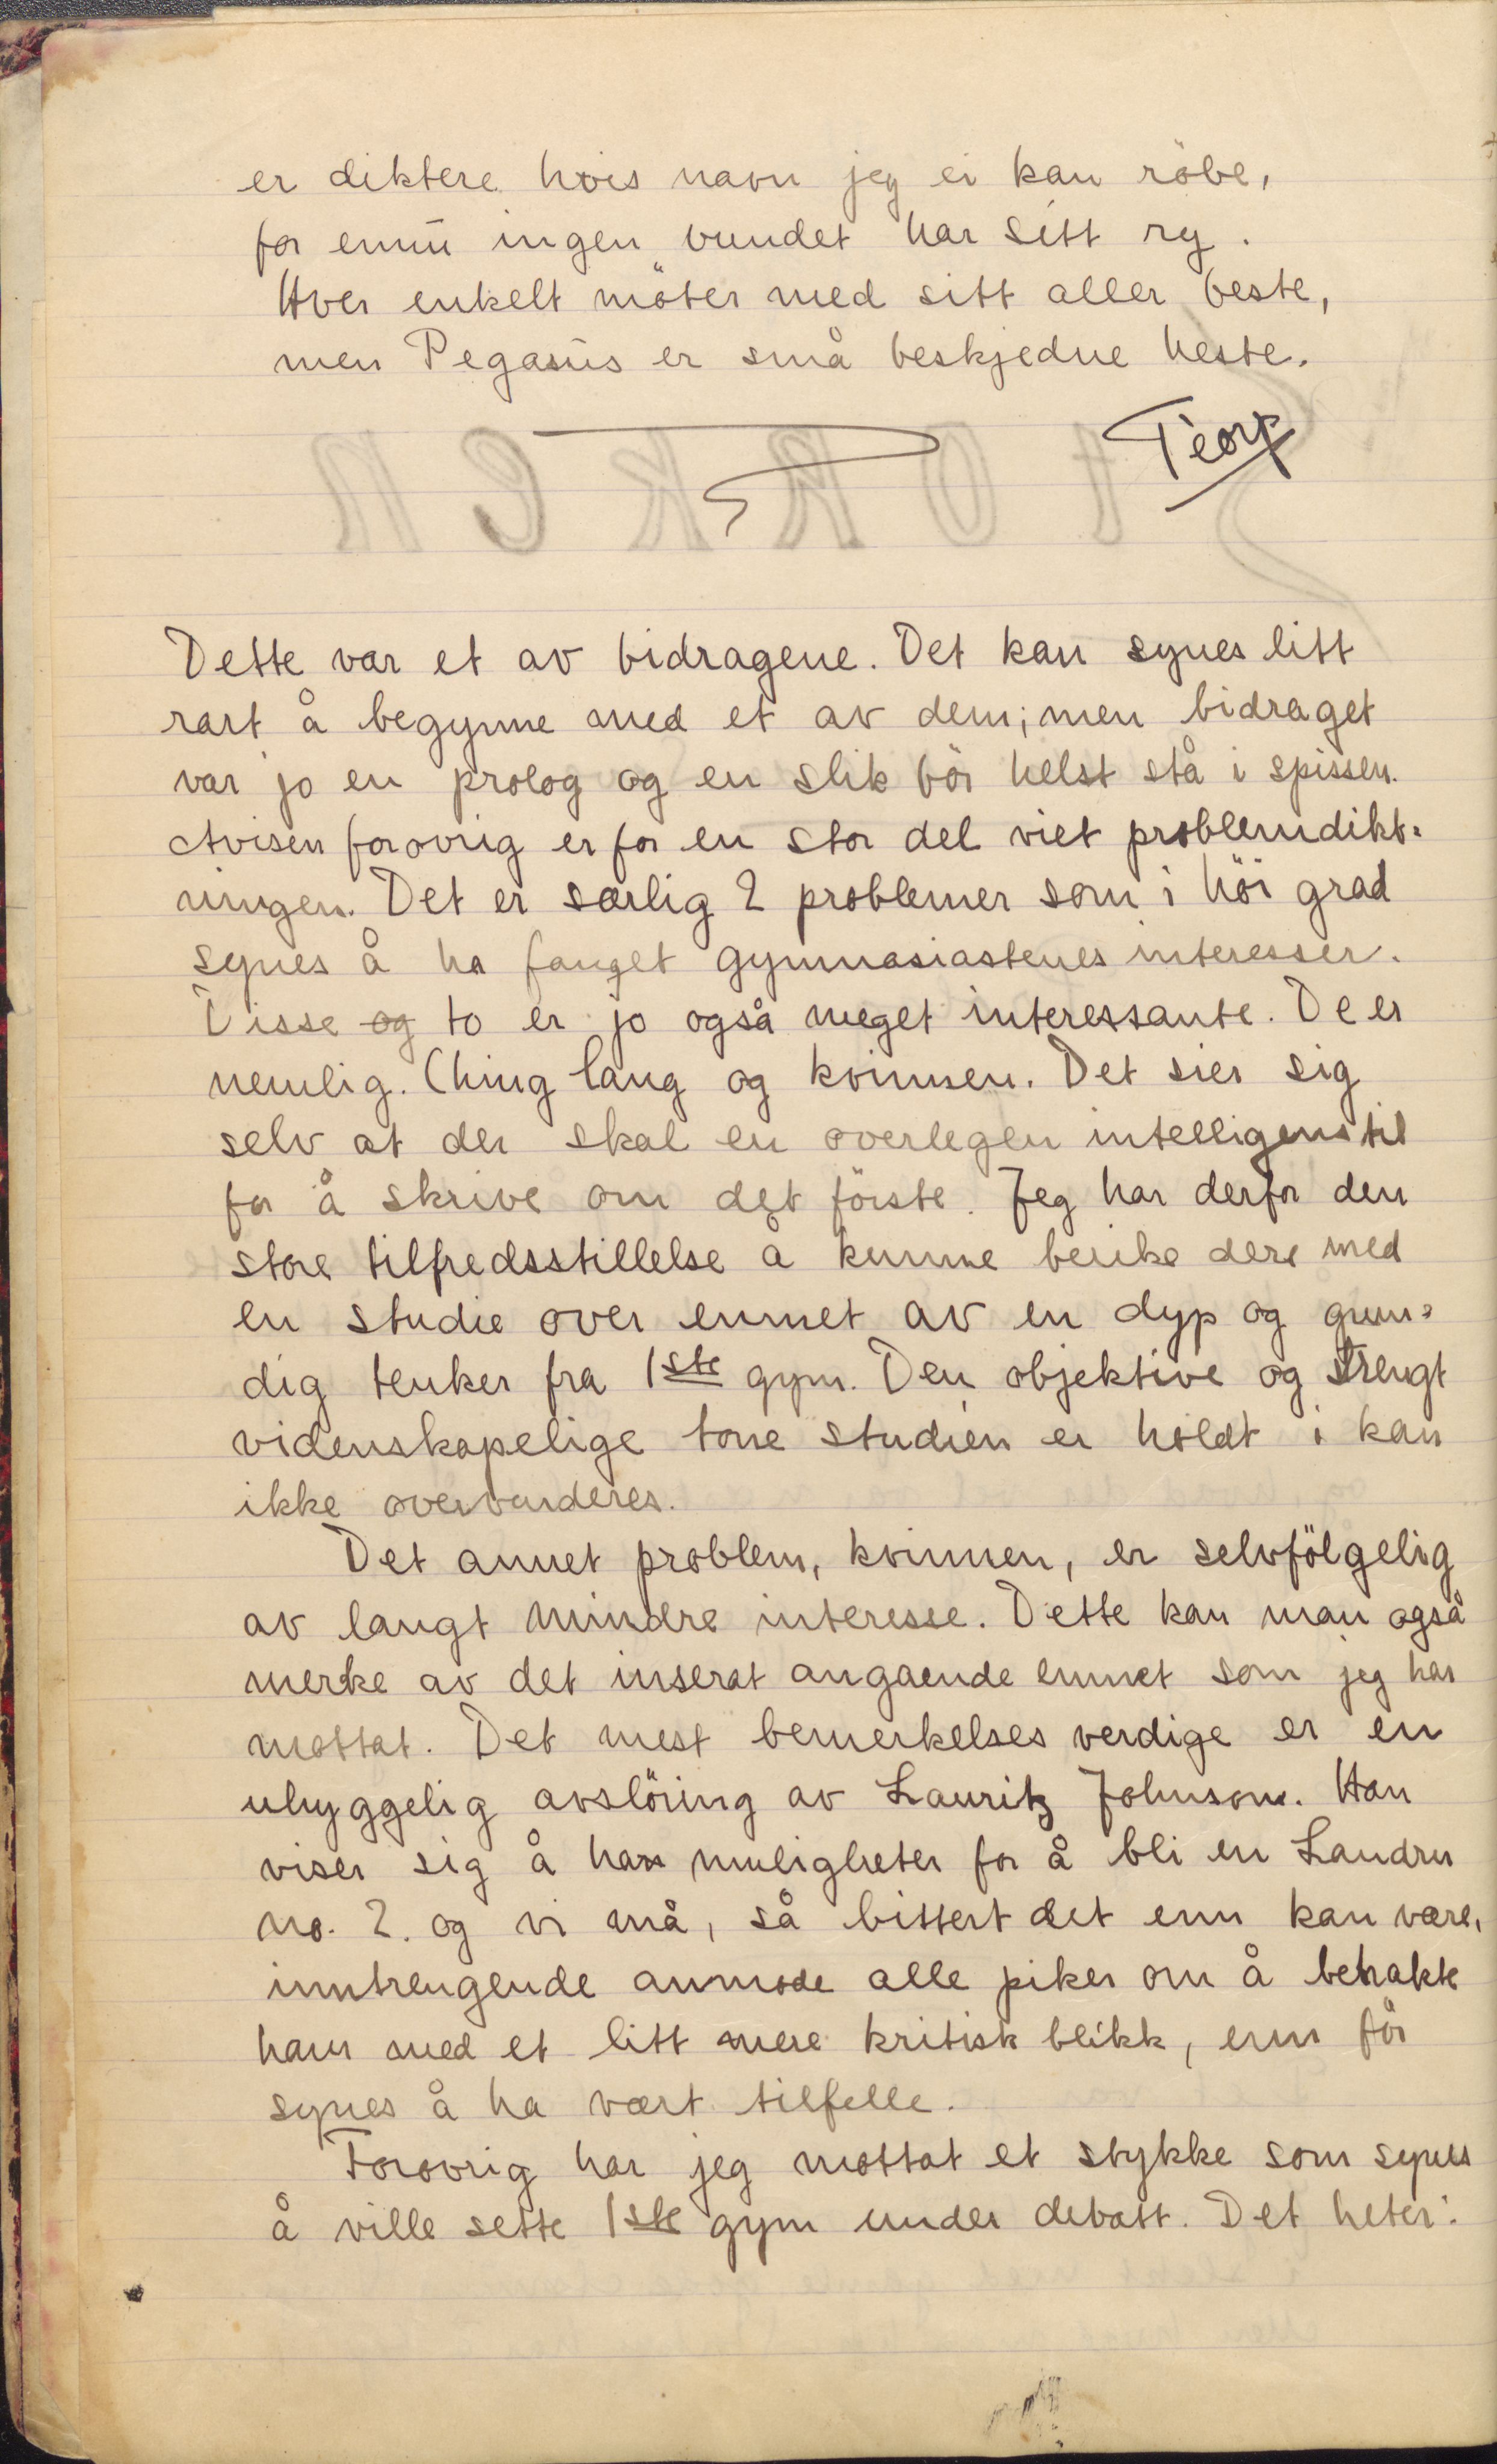 er diktere hvis navn jeg ei kan röbe,
for ennu ingen vundet har sitt ry.
Hver enkelt möter med sitt aller beste,
men Pegasus er små beskjedne heste.
Dette var et av bidragene. Det kan synes litt
rart å begynne med et av dem; men bidraget
var jo en prolog og en slik bör helst stå i spissen.
Avisen forøvrig er for en stor del viet problemdikt=
ningen. Det er særlig 2 problemer som i höi grad
synes å ha fanget gymnasiastenes interesser.
Disse og to er jo også meget interessante. De er
nemlig. Ching lang og kvinnen. Det sier sig
selv at der skal en overlegen intelligens til
for å skrive om det förste. Jeg har derfor den
store tilfredsstillelse å kunne berike dere med
en studie over emnet av en dyp og grun=
dig tenker fra 1ste gym. Den objektive og strengt
videnskapelige tone studien er holdt i kan
ikke overvurderes.
Det annet problem, kvinnen, er selvfölgelig
av langt mindre interesse. Dette kan man også
merke av det inserat angaende emnet som jeg har
mottat. Det mest bemerkelses verdige er en
uhyggelig avslöring av Lauritz Johnson. Han
viser sig å ha muligheter for å bli en Landru
no. 2. og vi må, så bittert det enn kan være,
inntrengende anmode alle piker om å betrakte
ham med et litt mere kritisk blikk, enn för
synes å ha vært tilfelle.
Forøvrig har jeg mottat et stykke som synes
å ville sette 1ste gym under debatt. Det heter: